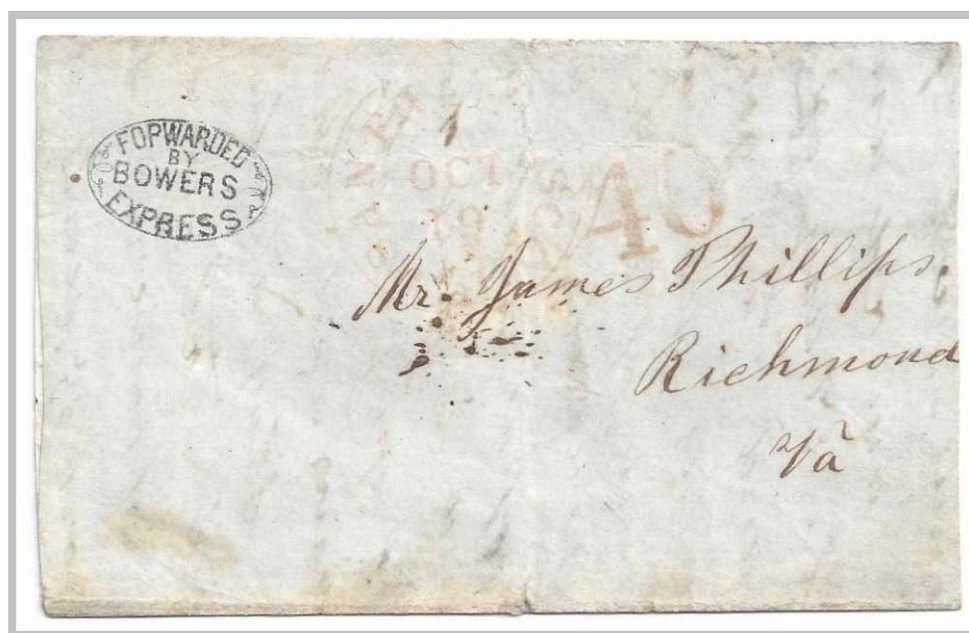 FOPWARDED
BY
BOWERS
EXPRESS
OCT
40
Mr. James Phillips.
Richmond
Va